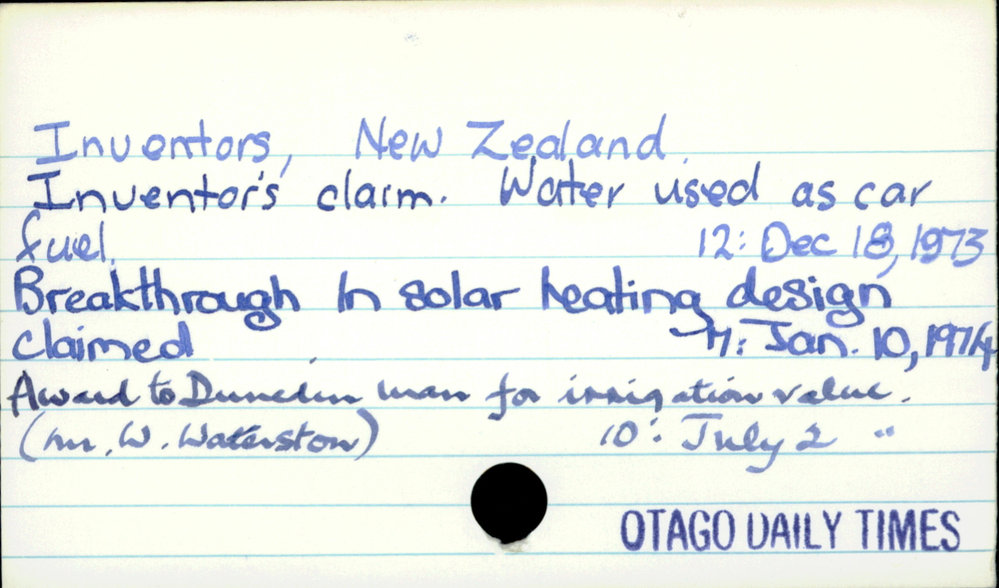 Inventors, New Zealand.
Inventor's claim. Water used as car
fuel. 12: Dec 18, 1973
Breakthrough in solar heating design
claimed Jan. 10, 1974
Award to Dunedin man for irrigation value.
(Mr. W. Waterston) 10: July 2 "
OTAGO DAILY TIMES